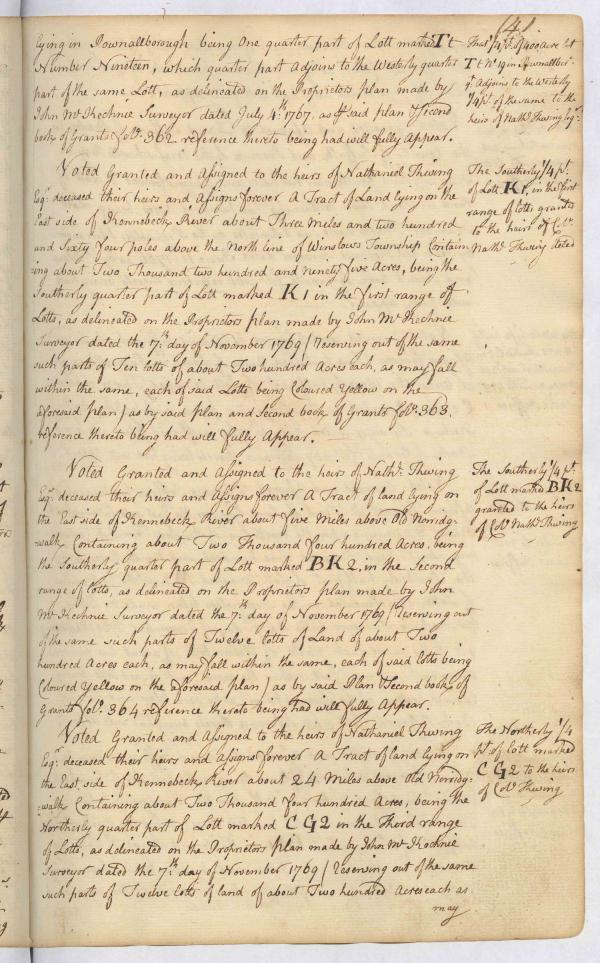 (4)
lying in Pownallborough being One quarter part of Lott marked Tt
Number Nineteen, which quarter part Adjoins to the Westerly quarter
part of the same Lott, as delineated on the Proprietors plan made by
John McKechnie Surveyor dated July 4th 1767, as p said plan & Second
book of Grants folo. 362 reference thereto being had will fully Appear.
That 1/4 pt. of 400 Acre lot
Tt No 19 in Pownallbor-
g. Adjoins to the Westerly
1/4 pt. of the same to the
heirs of Nathl. Thwing Esqr.
Voted Granted and Assigned to the heirs of Nathaniel Thwing
Esqr. deceased their heirs and Assigns forever A Tract of Land lying on the
East side of Kennebeck River about Three Miles and two hundred
and Sixty four poles above the North line of Winslows Township Contain
ing about Two Thousand two hundred and Ninety five Acres, being the
Southerly quarter part of Lott marked K 1 in the first range of
Lotts, as delineated on the Proprietors plan made by John McKechnie
Surveyor dated the 7th day of November 1769 (Reserving out of the same
such parts of Ten lotts of about Two hundred Acres each, as may fall
within the same, each of said Lotts being Coloured Yellow on the
aforesaid plan) as by said plan and Second book of Grants folo. 363.
reference thereto being had will fully Appear.
The Southerly 1/4 pt.
of Lott K1, in the first
range of lotts granted
to the heirs of Colo.
Nathl. Thwing dated
Voted Granted and Assigned to the heirs of Nathl. Thwing
Esqr. deceased their heirs and Assigns forever A Tract of land lying on
the East side of Kennebeck River about five Miles above Old Norridg-
-walk Containing about Two Thousand four hundred Acres, being
the Southerly quarter part of Lott marked BK 2, in the Second
range of lotts, as delineated on the Proprietors plan made by John
McKechnie Surveyor dated the 7th day of November 1769 (Reserving out
of the same such parts of Twelve lotts of Land of about Two
hundred Acres each, as may fall within the same, each of said lotts being
Coloured Yellow on the aforesaid plan) as by said Plan & Second book of
Grants folo. 364 reference thereto being had will fully Appear.
The Southerly 1/4 pt.
of Lott marked BK2
granted to the heirs
of Colo. Nathl. Thwing
Voted Granted and Assigned to the heirs of Nathaniel Thwing
Esqr. deceased their heirs and Assigns forever A Tract of land lying on
the East side of Kennebeck River about 24 Miles above Old Norridg-
-walk Containing about Two Thousand four hundred Acres, being the
Northerly quarter part of Lott marked CG2 in the Third range
of Lotts, as delineated on the Proprietors plan made by John McKechnie
Surveyor dated the 7th day of November 1769 (Reserving out of the same
such parts of Twelve lotts of land of about Two hundred Acres each as
may
The Northerly 1/4
pt. of lott marked
CG2 to the heirs
of Colo. Thwing